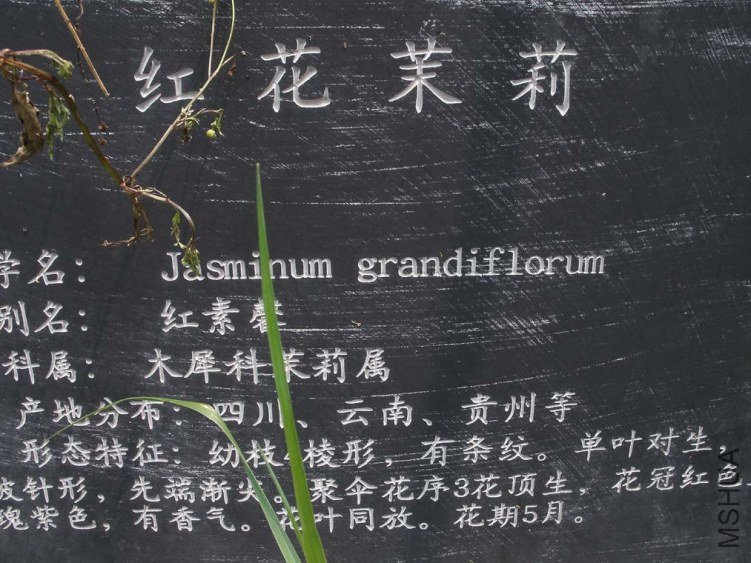 红花茉莉
学名： Jasminum grandiflorum
别名： 红素馨
科属： 木犀科茉莉属
产地分布：四川、云南、贵州等
形态特征：幼枝4棱形，有条纹。单叶对生，
披针形，先端渐尖。聚伞花序3花顶生，花冠红色至
瑰紫色，有香气。花叶同放。花期5月。
MSHUA